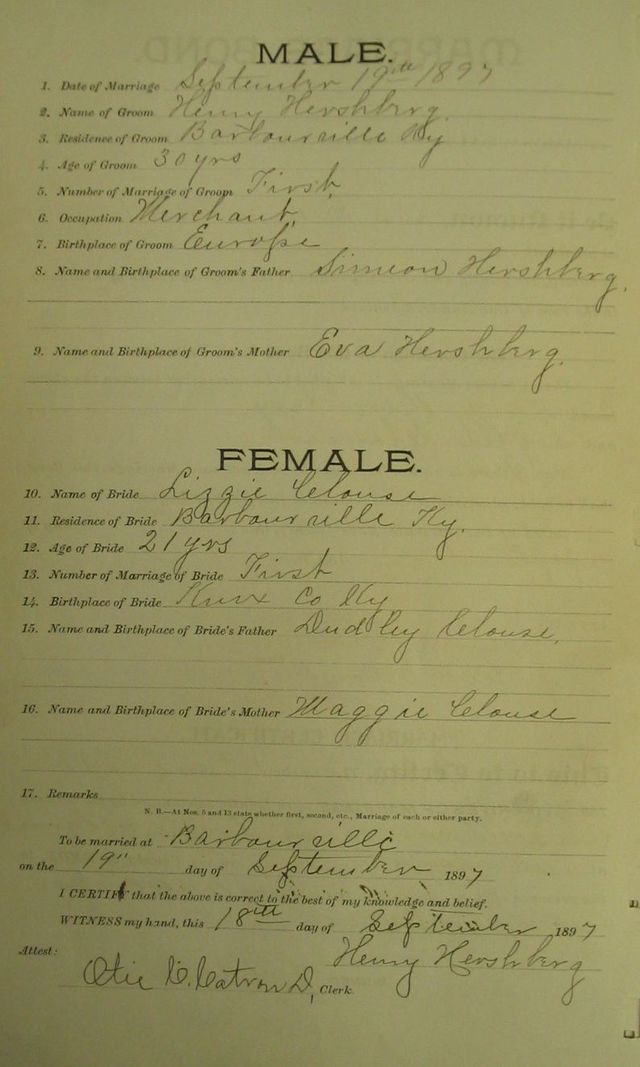 MALE.
1. Date of Marriage September 19th 1897
2. Name of Groom Henry Hershberg.
3. Residence of Groom Barbourville Ky
4. Age of Groom 30 yrs
5. Number of Marriage of Groom First
6. Occupation Merchant
7. Birthplace of Groom Europe
8. Name and Birthplace of Groom's Father Simeon Hershberg.
9. Name and Birthplace of Groom's Mother Eva Hershberg.
FEMALE.
10. Name of Bride Lizzie Clouse
11. Residence of Bride Barbourville Ky.
12. Age of Bride 21 yrs
13. Number of Marriage of Bride First
14. Birthplace of Bride Knox Co Ky
15. Name and Birthplace of Bride's Father Dudley Clouse.
16. Name and Birthplace of Bride's Mother Maggie Clouse
17. Remarks
N. B.—At Nos. 5 and 13 state whether first, second, etc., Marriage of each or either party.
To be married at Barbourville
on the 19" day of September 1897
I CERTIFY that the above is correct to the best of my knowledge and belief.
WITNESS my hand, this 18th day of September 1897
Henry Hershberg
Attest:
C. Catron D, Clerk.